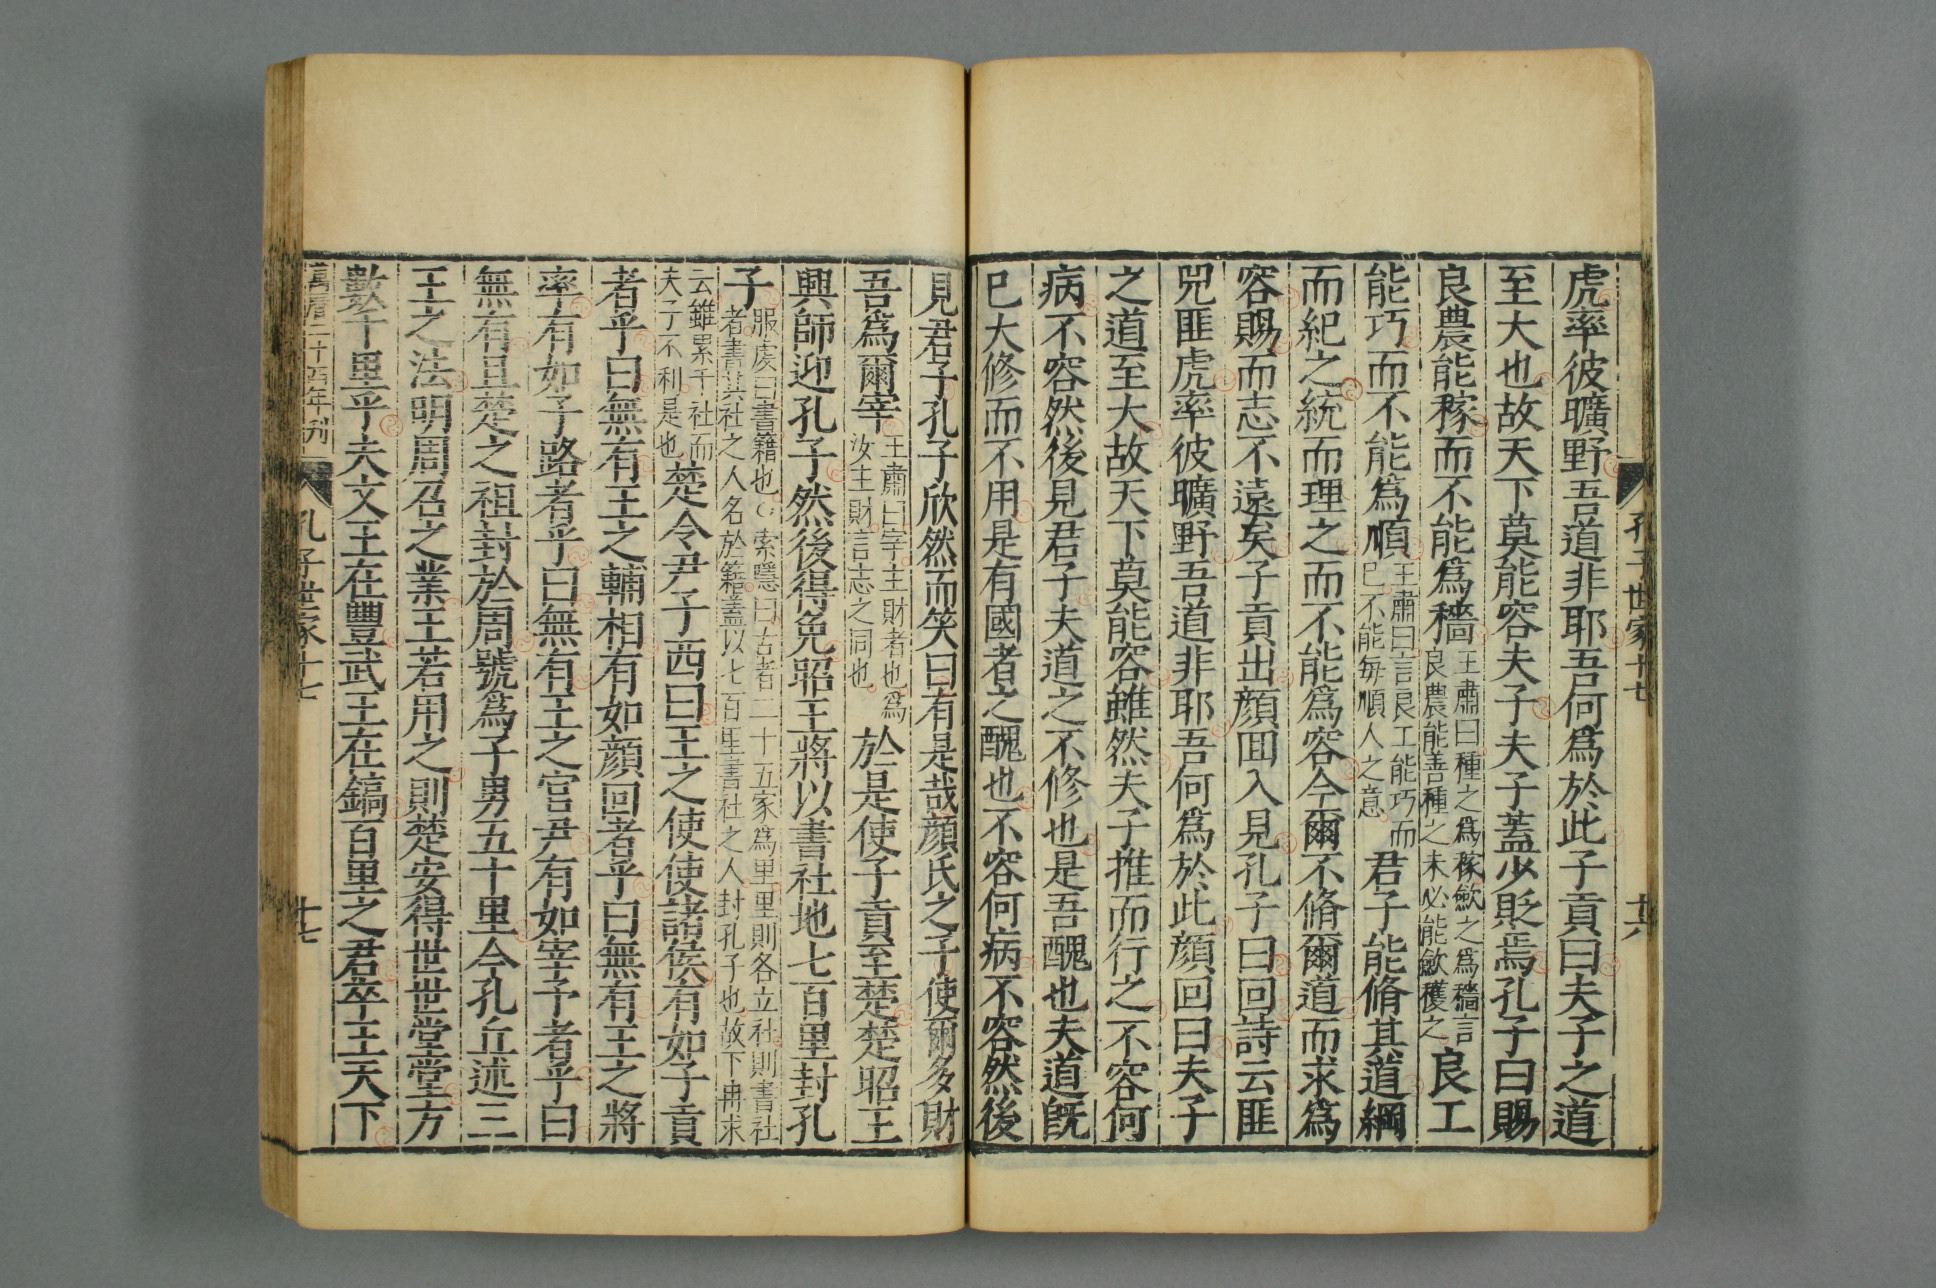 孔子世家十七
十六
虎率彼曠野吾道非耶吾何爲於此子貢曰夫子之道
至大也故天下莫能容夫子夫子蓋少貶焉孔子曰賜
良農能稼而不能爲穡王肅曰種之爲稼歛之爲穡言良農能善種之未必能歛穫之良工
能巧而不能爲順王肅曰言良工能巧而已不能每順人之意君子能脩其道綱
而紀之統而理之而不能爲容今爾不脩爾道而求爲
容賜而志不遠矣子貢出顏回入見孔子曰回詩云匪
兕匪虎率彼曠野吾道非耶吾何爲於此顏回曰夫子
之道至大故天下莫能容雖然夫子推而行之不容何
病不容然後見君子夫道之不修也是吾醜也夫道旣
已大修而不用是有國者之醜也不容何病不容然後
見君子孔子欣然而笑曰有是哉顏氏之子使爾多財
吾爲爾宰王肅曰宰主財者也爲汝主財言志之同也於是使子貢至楚楚昭王
興師迎孔子然後得免昭王將以書社地七百里封孔
子服虔曰書籍也○索隱曰古者二十五家爲里里則各立社則書社者書其社之人名於籍蓋以七百里書社之人封孔子也故下冉求
云雖累千社而夫子不利是也楚令尹子西曰王之使使諸侯有如子貢
者乎曰無有王之輔相有如顏回者乎曰無有王之將
率有如子路者乎曰無有王之官尹有如宰予者乎曰
無有且楚之祖封於周號爲子男五十里今孔丘述三
王之法明周召之業王若用之則楚安得世世堂堂方
數千里乎夫文王在豐武王在鎬百里之君卒王天下
萬曆二十四年刊
孔子世家十七
十七